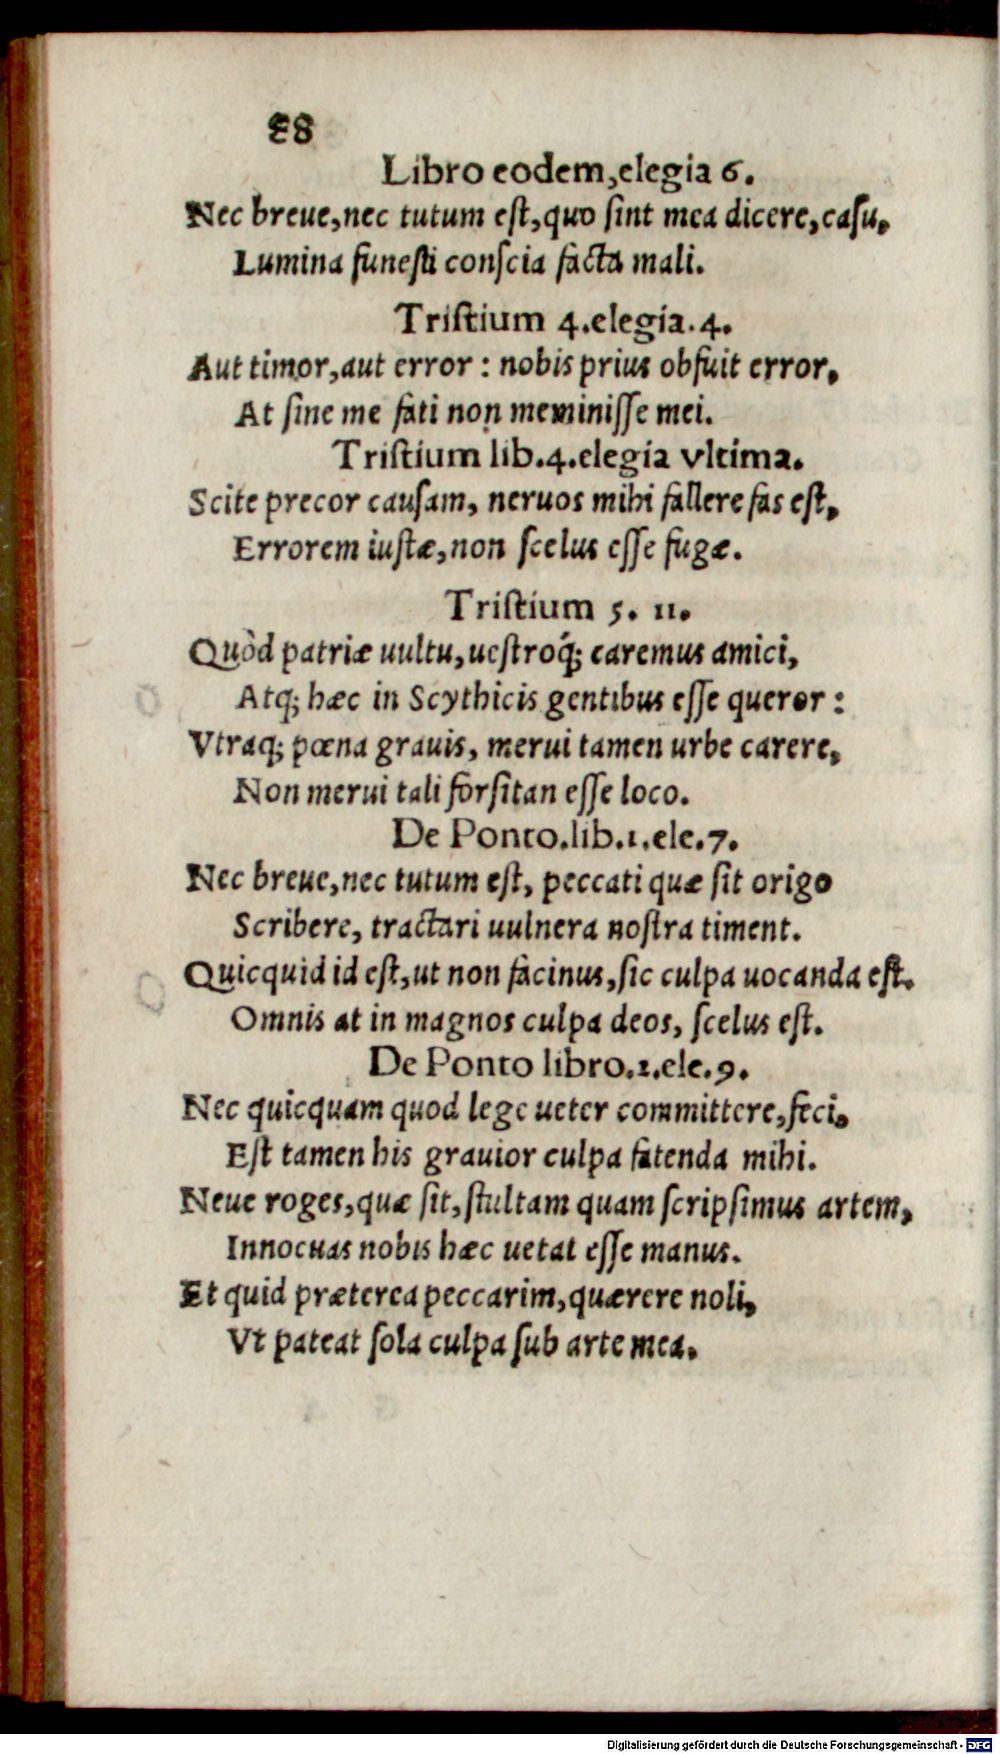 88
Libro eodem,elegia 6.
Nec breue,nec tutum eſt,quo ſint mea dicere,caſu,
Lumina funeſti conſcia facta mali.
Triſtium 4.elegia.4.
Aut timor,aut error : nobis prius obfuit error,
At ſine me fati non meminiſſe mei.
Triſtium lib.4.elegia vltima.
Scite precor cauſam, neruos mihi fallere fas eſt,
Errorem iuſtæ,non ſcelus eſſe fugæ.
Triſtium 5. 11.
Quòd patriæ uultu,ueſtroq́; caremus amici,
Atq; hæc in Scythicis gentibus eſſe queror :
Vtraq; pœna grauis, merui tamen urbe carere,
Non merui tali forſitan eſſe loco.
De Ponto.lib.1.ele.7.
Nec breue,nec tutum eſt, peccati quæ ſit origo
Scribere, tractari uulnera noſtra timent.
Quicquid id eſt,ut non facinus,ſic culpa uocanda eſt.
Omnis at in magnos culpa deos, ſcelus eſt.
De Ponto libro.2.ele.9.
Nec quicquam quod lege ueter committere,feci,
Eſt tamen his grauior culpa fatenda mihi.
Neue roges,quæ ſit,ſtultam quam ſcripſimus artem,
Innocuas nobis hæc uetat eſſe manus.
Et quid præterea peccarim,quærere noli,
Vt pateat ſola culpa ſub arte mea.
Digitalisierung gefördert durch die Deutsche Forschungsgemeinschaft - DFG